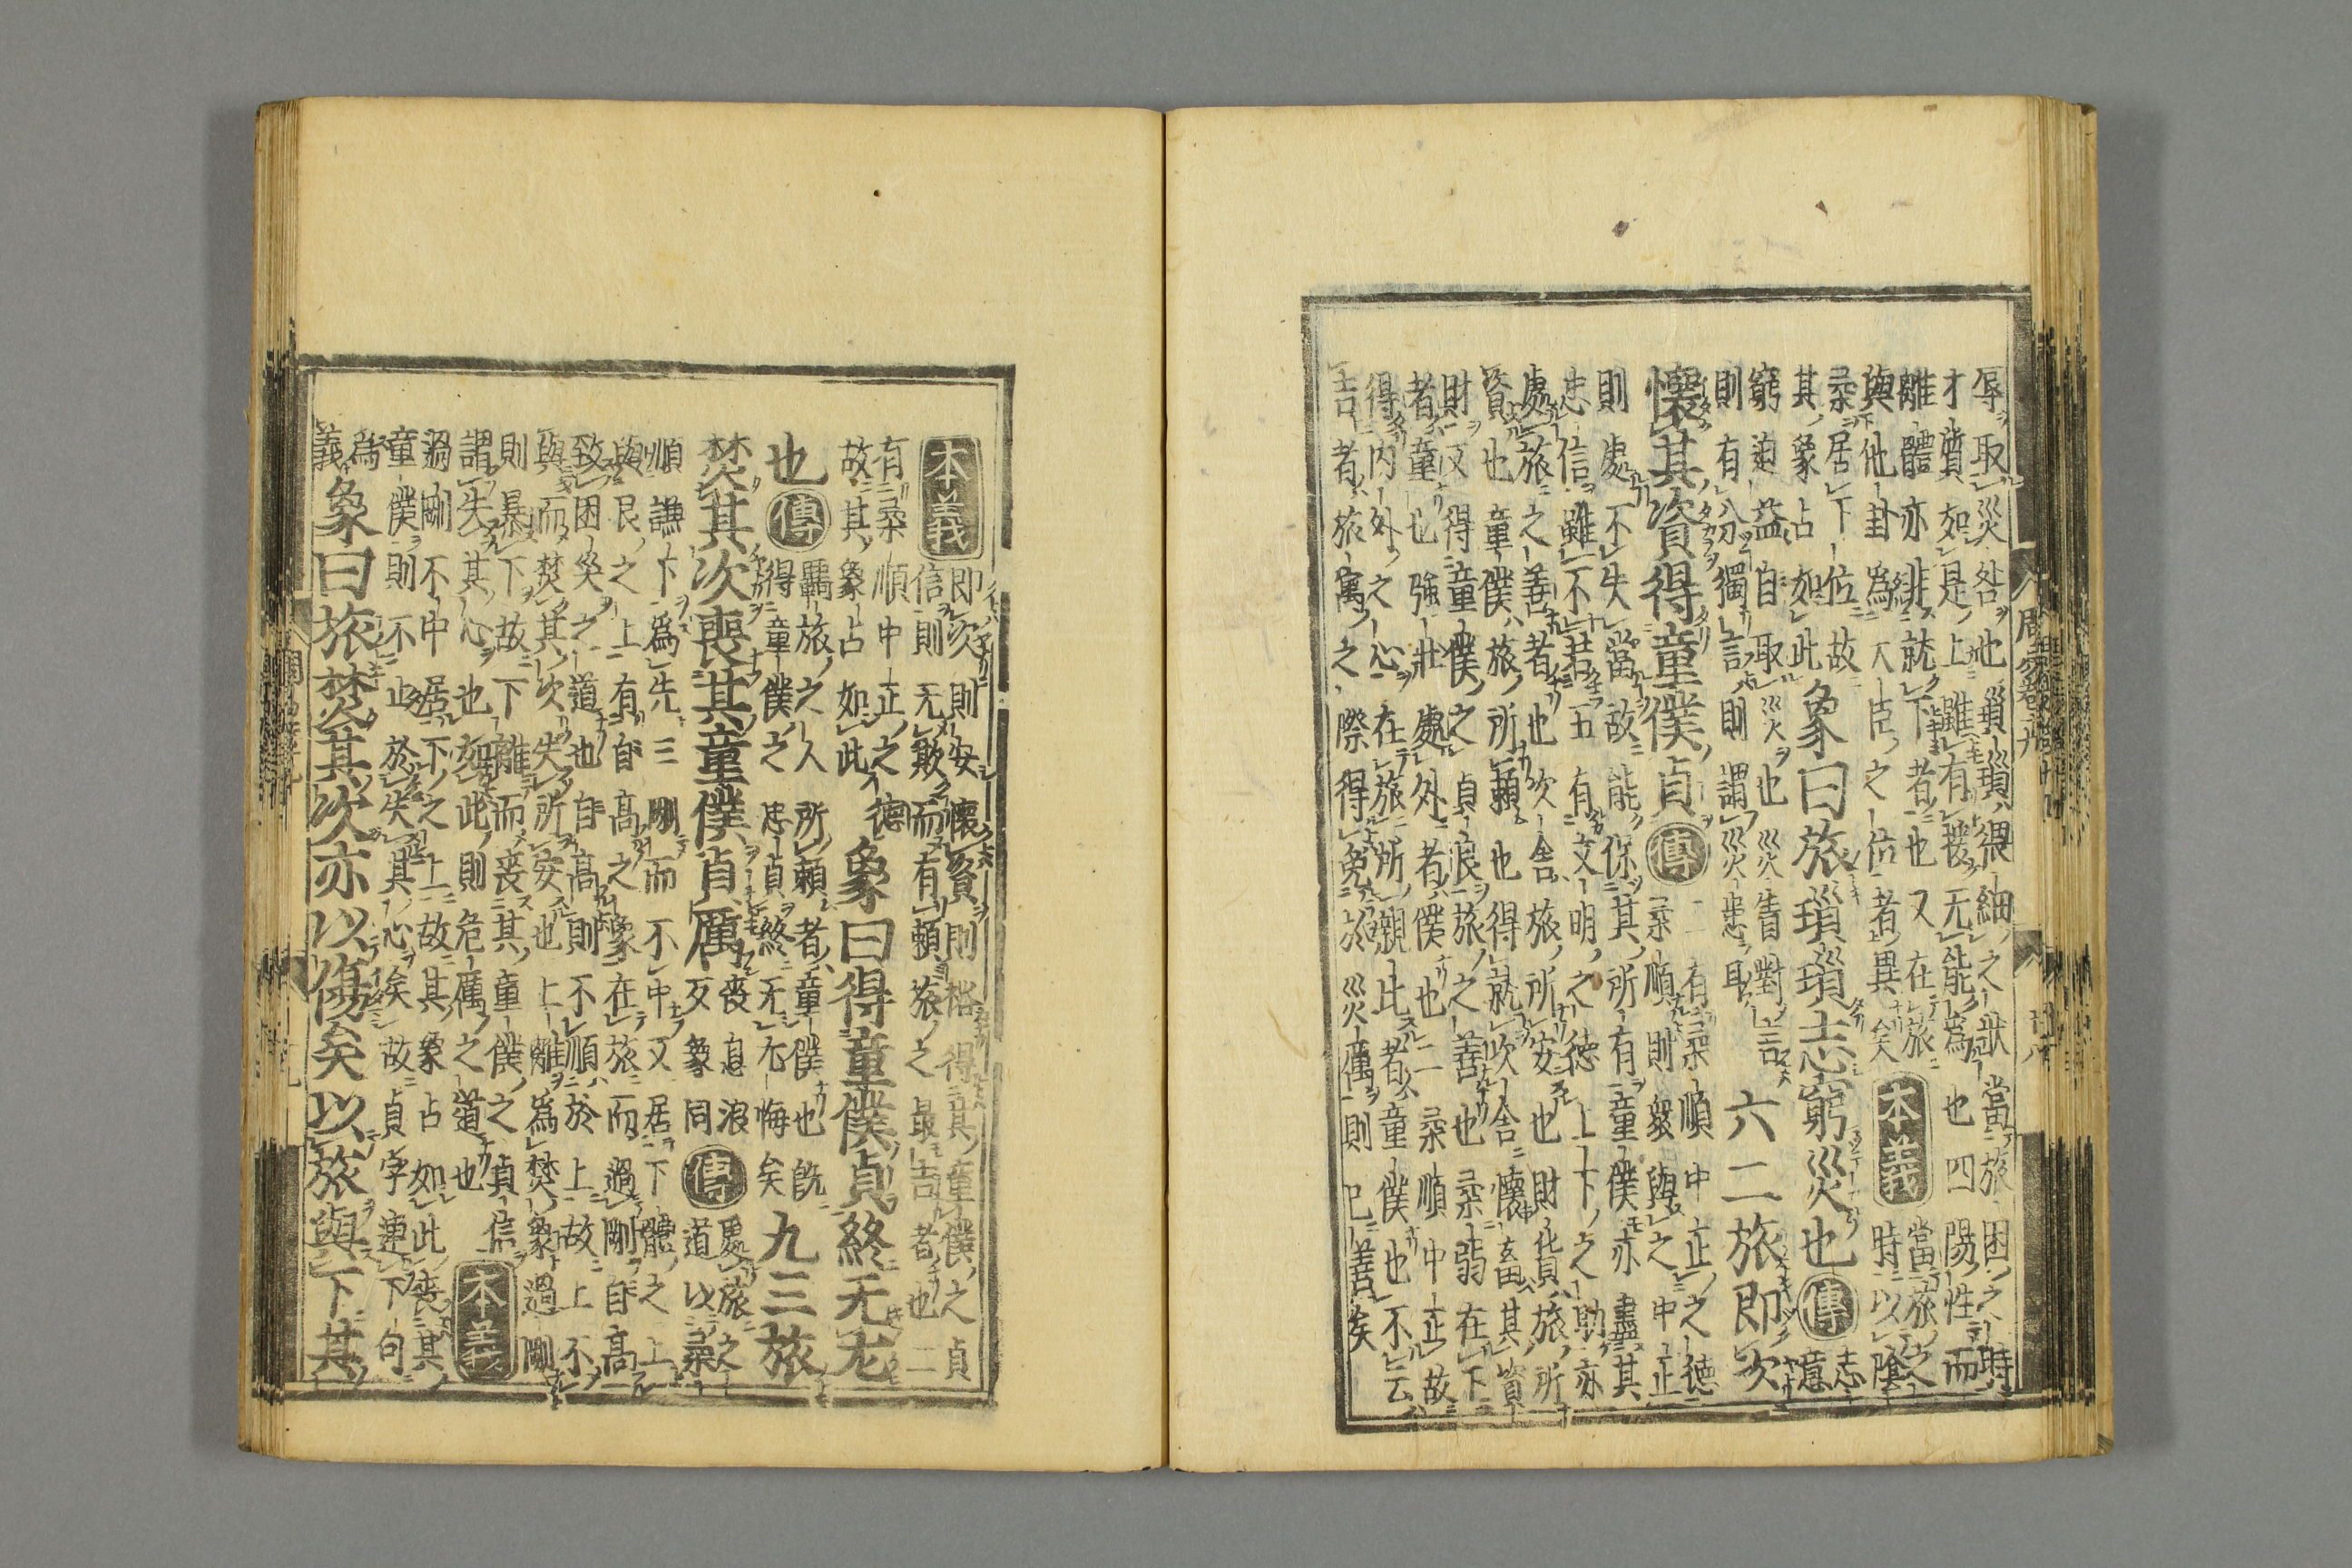 辱取災咎也瑣瑣猥細之狀當旅困之時
才質如是上雖有援无能爲也四陽性而
離體亦非就下者也又在旅
與他卦爲大臣之位者異矣
本義
當旅之
時以陰
柔居下位故
其象占如此
象曰旅瑣瑣志窮災也
傳
志
意
窮迫益自取災也災眚對言
則有分獨言則謂災患耳
六二旅即次
懷其資得童僕貞
傳
二有柔順中正之德
柔順則衆與之中正
則處不失當故能保其所有童僕亦盡其
忠信雖不若五有文明之德上下之助亦
處旅之善者也次舍旅所安也財貨旅所
資也童僕旅所賴也得就次舍懷畜其資
財又得童僕之貞良旅之善也柔弱在下
者童也強壯處外者僕也二柔順中正故
得內外之心在旅所親比者童僕也不云
吉者旅寓之際得免於災厲則已善矣
本義
即次則安懷資則裕得其童僕之貞
信則无欺而有賴旅之最吉者也二
有柔順中正之德
故其象占如此
象曰得童僕貞終无尤
也
傳
羇旅之人所賴者童僕也旣
得童僕之忠貞終无尤悔矣
九三旅
焚其次喪其童僕貞厲
喪息浪
反象同
傳
處旅之
道以柔
順謙下爲先三剛而不中又居下體之上
與艮之上有自高之象在旅而過剛自高
致困災之道也自高則不順於上故上不
與而焚其次失所安也上離爲焚象過剛
則暴下故下離而喪其童僕之貞信
謂失其心也如此則危厲之道也
本義
過剛不中居下之上故其象占如此喪其
童僕則不止於失其心矣故貞字連下句
爲
義
象曰旅焚其次亦以傷矣以旅與下其